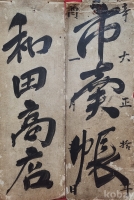 大正
市賣帳
和田商店
kobay